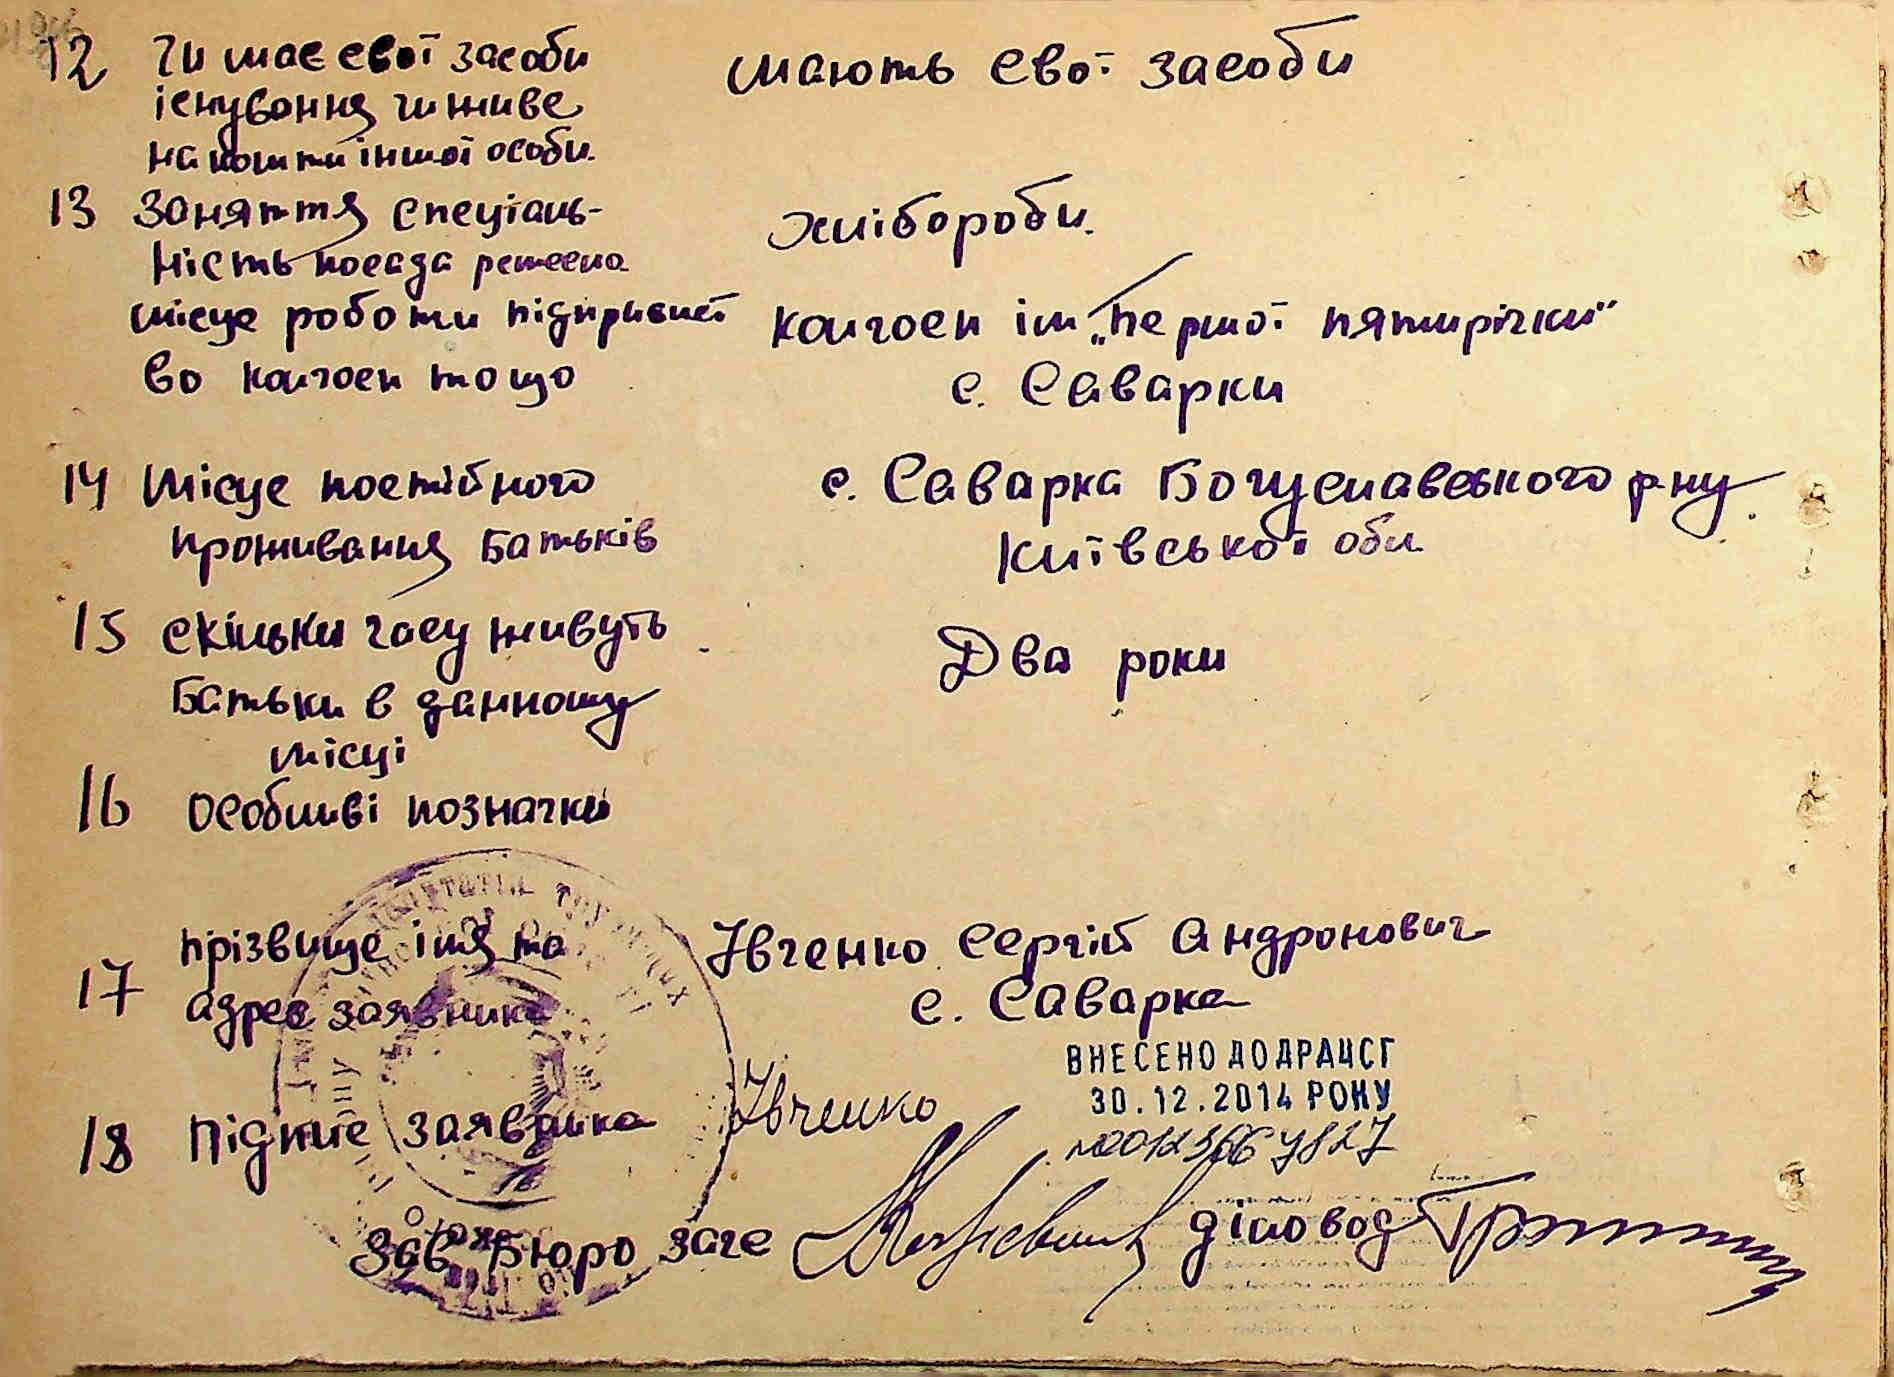 12 Чи має свої засоби мають свої засоби
існування чи живе
на кошти іншої особи.
13 Заняття спеціаль- хлібороби.
ність посада ремесло
місце роботи підприємст колгосп ім „Першої пятирічки"
во колгосп тощо с. Саварки
14 Місце постійного с. Саварка Богуславського р-ну
проживання батьків Київської обл.
15 Скільки часу живуть Два роки
батьки в данному
місці
16 Особливі позначки
17 Прізвище імя та Івченко Сергій Андронович
адрес заявника с. Саварка
ВНЕСЕНО ДО ДРАЦСГ
30.12.2014 РОКУ
18 Підпис заявника Івченко
Зав. Бюро загс діловод